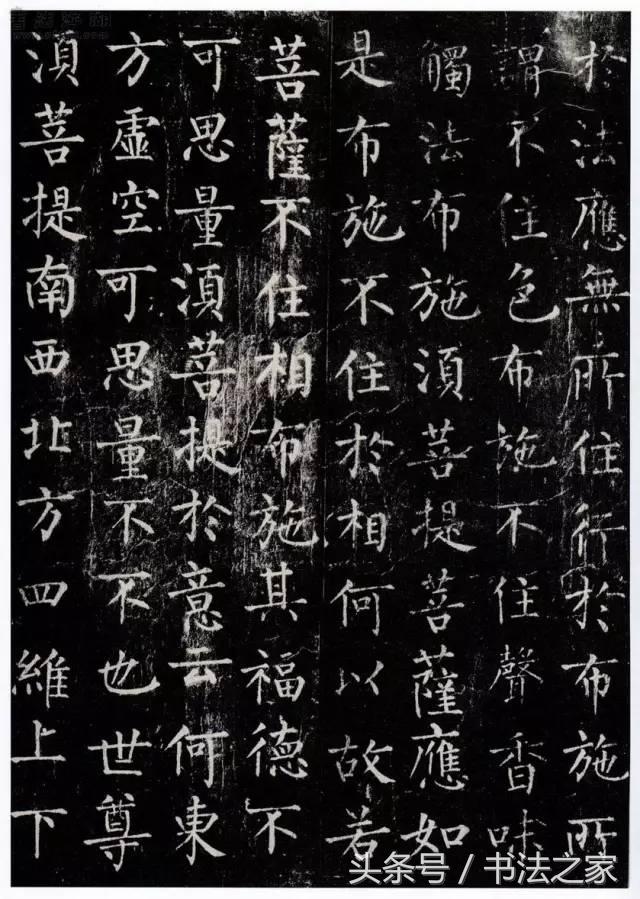 於法應無所住行於布施所
謂不住色布施不住聲香味
觸法布施須菩提菩薩應如
是布施不住於相何以故若
菩薩不住相布施其福德不
可思量須菩提於意云何東
方虛空可思量不不也世尊
須菩提南西北方四維上下
头条号 / 书法之家